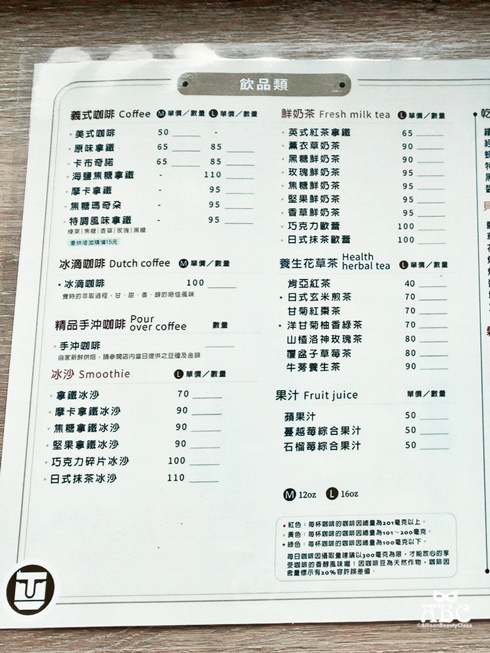 飲品類
義式咖啡 Coffee M 單價/數量 L 單價/數量
美式咖啡 50 -
原味拿鐵 65 85
卡布奇諾 65 85
海鹽焦糖拿鐵 - 110
摩卡拿鐵 - 95
焦糖瑪奇朵 - 95
特調風味拿鐵 - 95
榛果|焦糖|香草|玫瑰|黑糖
冰滴咖啡 Dutch coffee M 單價/數量
冰滴咖啡 100
費時的萃取過程,甘、甜、香、醇的絕佳風味
精品手沖咖啡 Pour over coffee 數量
手沖咖啡
自家新鮮烘焙,請參閱店內當日提供之豆種及金額
冰沙 Smoothie L 單價/數量
拿鐵冰沙 70
摩卡拿鐵冰沙 90
焦糖拿鐵冰沙 90
堅果拿鐵冰沙 90
巧克力碎片冰沙 100
日式抹茶冰沙 110
鮮奶茶 Fresh milk tea L 單價/數量
英式紅茶拿鐵 65
薰衣草奶茶 90
黑糖鮮奶茶 90
玫瑰鮮奶茶 95
焦糖鮮奶茶 95
堅果鮮奶茶 95
香草鮮奶茶 95
巧克力歐蕾 100
日式抹茶歐蕾 100
養生花草茶 Health herbal tea L 單價/數量
肯亞紅茶 40
日式玄米煎茶 70
甘菊紅棗茶 70
洋甘菊柚香綠茶 70
山楂洛神玫瑰茶 80
覆盆子草莓茶 80
牛蒡養生茶 90
果汁 Fruit juice 單價/數量
蘋果汁 50
蔓越莓綜合果汁 50
石榴莓綜合果汁 50
M 12oz L 16oz
紅色:每杯咖啡的咖啡因總量為201毫克以上。
黃色:每杯咖啡的咖啡因總量為101~200毫克。
綠色:每杯咖啡的咖啡因總量為100毫克以下。
每日咖啡因攝取量建議以300毫克為限,才能放心的享
受咖啡的香醇風味喔!因咖啡豆為天然作物,咖啡因
含量標示有20%容許誤差值。
ABC
©AllisonBeautyClass